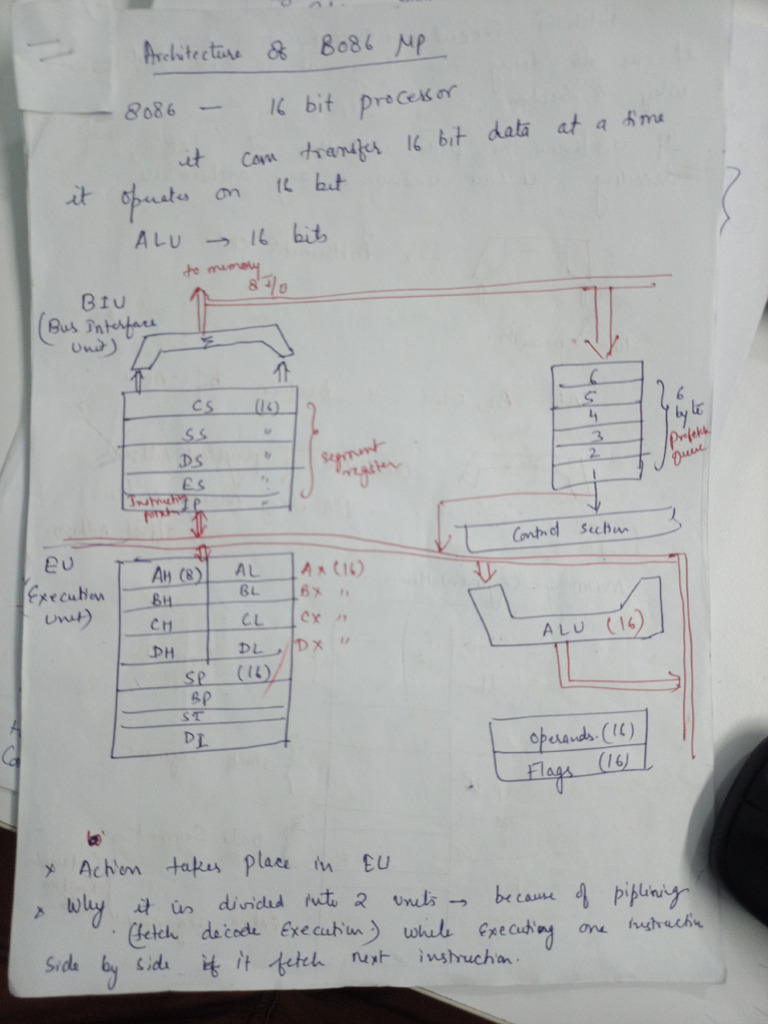 Architecture of 8086 MP
8086 — 16 bit processor
it can transfer 16 bit data at a time
it operates on 16 bit
ALU → 16 bits
to memory
& I/O
BIU
(Bus Interface
Unit)
Σ
CS (16)
SS "
DS "
ES "
Instruction pointer IP "
segment
register
6
5
4
3
2
1
6
byte
Prefetch
Queue
Control section
EU
(Execution
Unit)
AH (8) AL AX (16)
BH BL BX "
CH CL CX "
DH DL DX "
SP (16)
BP
SI
DI
ALU (16)
Operands (16)
Flags (16)
x Action takes place in EU
x Why it is divided into 2 units → because of piplining
(fetch decode Execution) while executing one instruction
side by side it fetch next instruction.